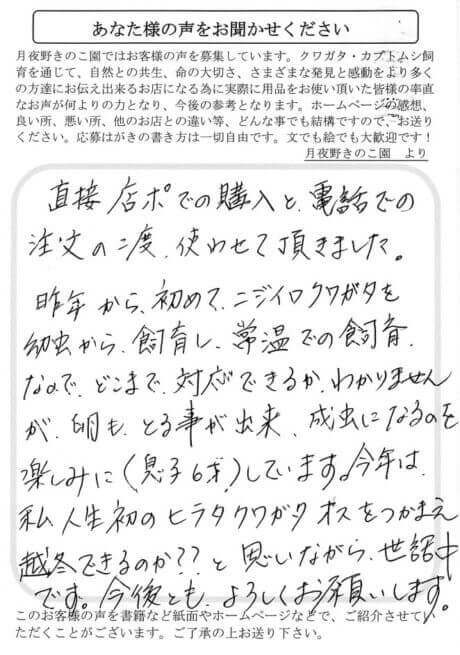 あなた様の声をお聞かせください
月夜野きのこ園ではお客様の声を募集しています。クワガタ・カブトムシ飼
育を通じて、自然との共生、命の大切さ、さまざまな発見と感動をより多く
の方達にお伝え出来るお店になる為に実際に用品をお使い頂いた皆様の率直
なお声が何よりの力となり、今後の参考となります。ホームページの感想、
良い所、悪い所、他のお店との違い等、どんな事でも結構ですので、お送り
ください。応募はがきの書き方は一切自由です。文でも絵でも大歓迎です！
月夜野きのこ園　より
直接店ポでの購入と、電話での
注文の二度、使わせて頂きました。
昨年から、初めて、ニジイロクワガタを
幼虫から、飼育し、常温での飼育、
なので、どこまで、対応できるか、わかりません
が、卵も、とる事が出来、成虫になるのを
楽しみに(息子6才)しています。今年は、
私人生初のヒラタクワガタオスをつかまえ
越冬できるのか??と思いながら、世話中
です。今後とも、よろしくお願いします。
このお客様の声を書籍など紙面やホームページなどで、ご紹介させてい
ただくことがございます。ご了承の上お送り下さい。